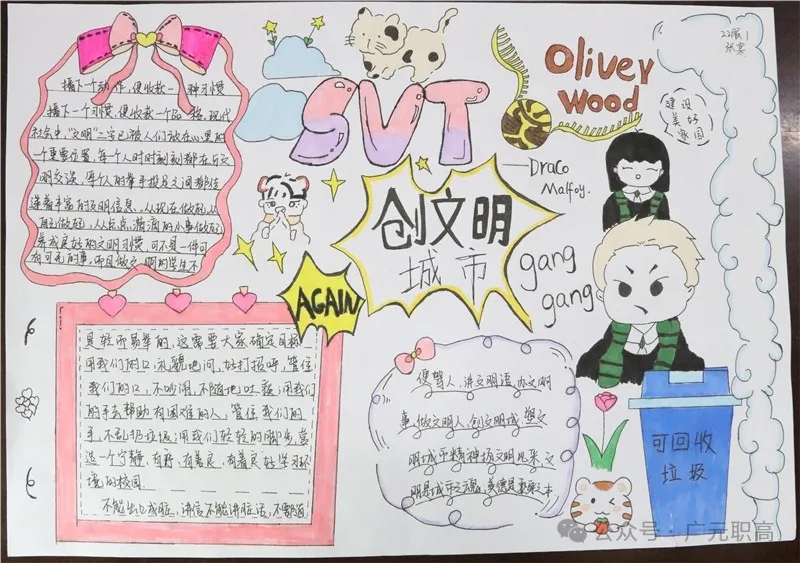 播下一个动作,便收获一种习惯
播下一个习惯,便收获一个品格,现代
社会中,"文明"二字已被人们放在心里的
一个重要位置,每个人时时刻刻都在与文
明交谈,每个人的举手投足之间都传
递着丰富的文明信息,从现在做起,从
自己做起,从点点滴滴的小事做起
养成良好的文明习惯,可不是一件可
有可无的事,而且做文明的学生不
SVT
Oliver
Wood
22服1
建设
美好
家园
Draco
Malfoy.
创文明
城市
gang
gang
AGAIN
是轻而易举的,这需要大家确定目标
用我们的口礼貌地问,好打招呼,管住
我们的口,不吵闹,不随地吐痰,用我们
的手去帮助有困难的人,管住我们的
手,不乱扔垃圾;用我们轻轻的脚步,营
造一个宁静,有序,有善良,有着良好学习环
境的校园
不能出口成脏,讲信不能讲脏话,不
便驾人,讲文明语,办文明
事,做文明人,创文明城,塑文
明城市精神,扬文明风采,文
明是城市之魂,美德是
可回收
垃圾
公众号·广元职高